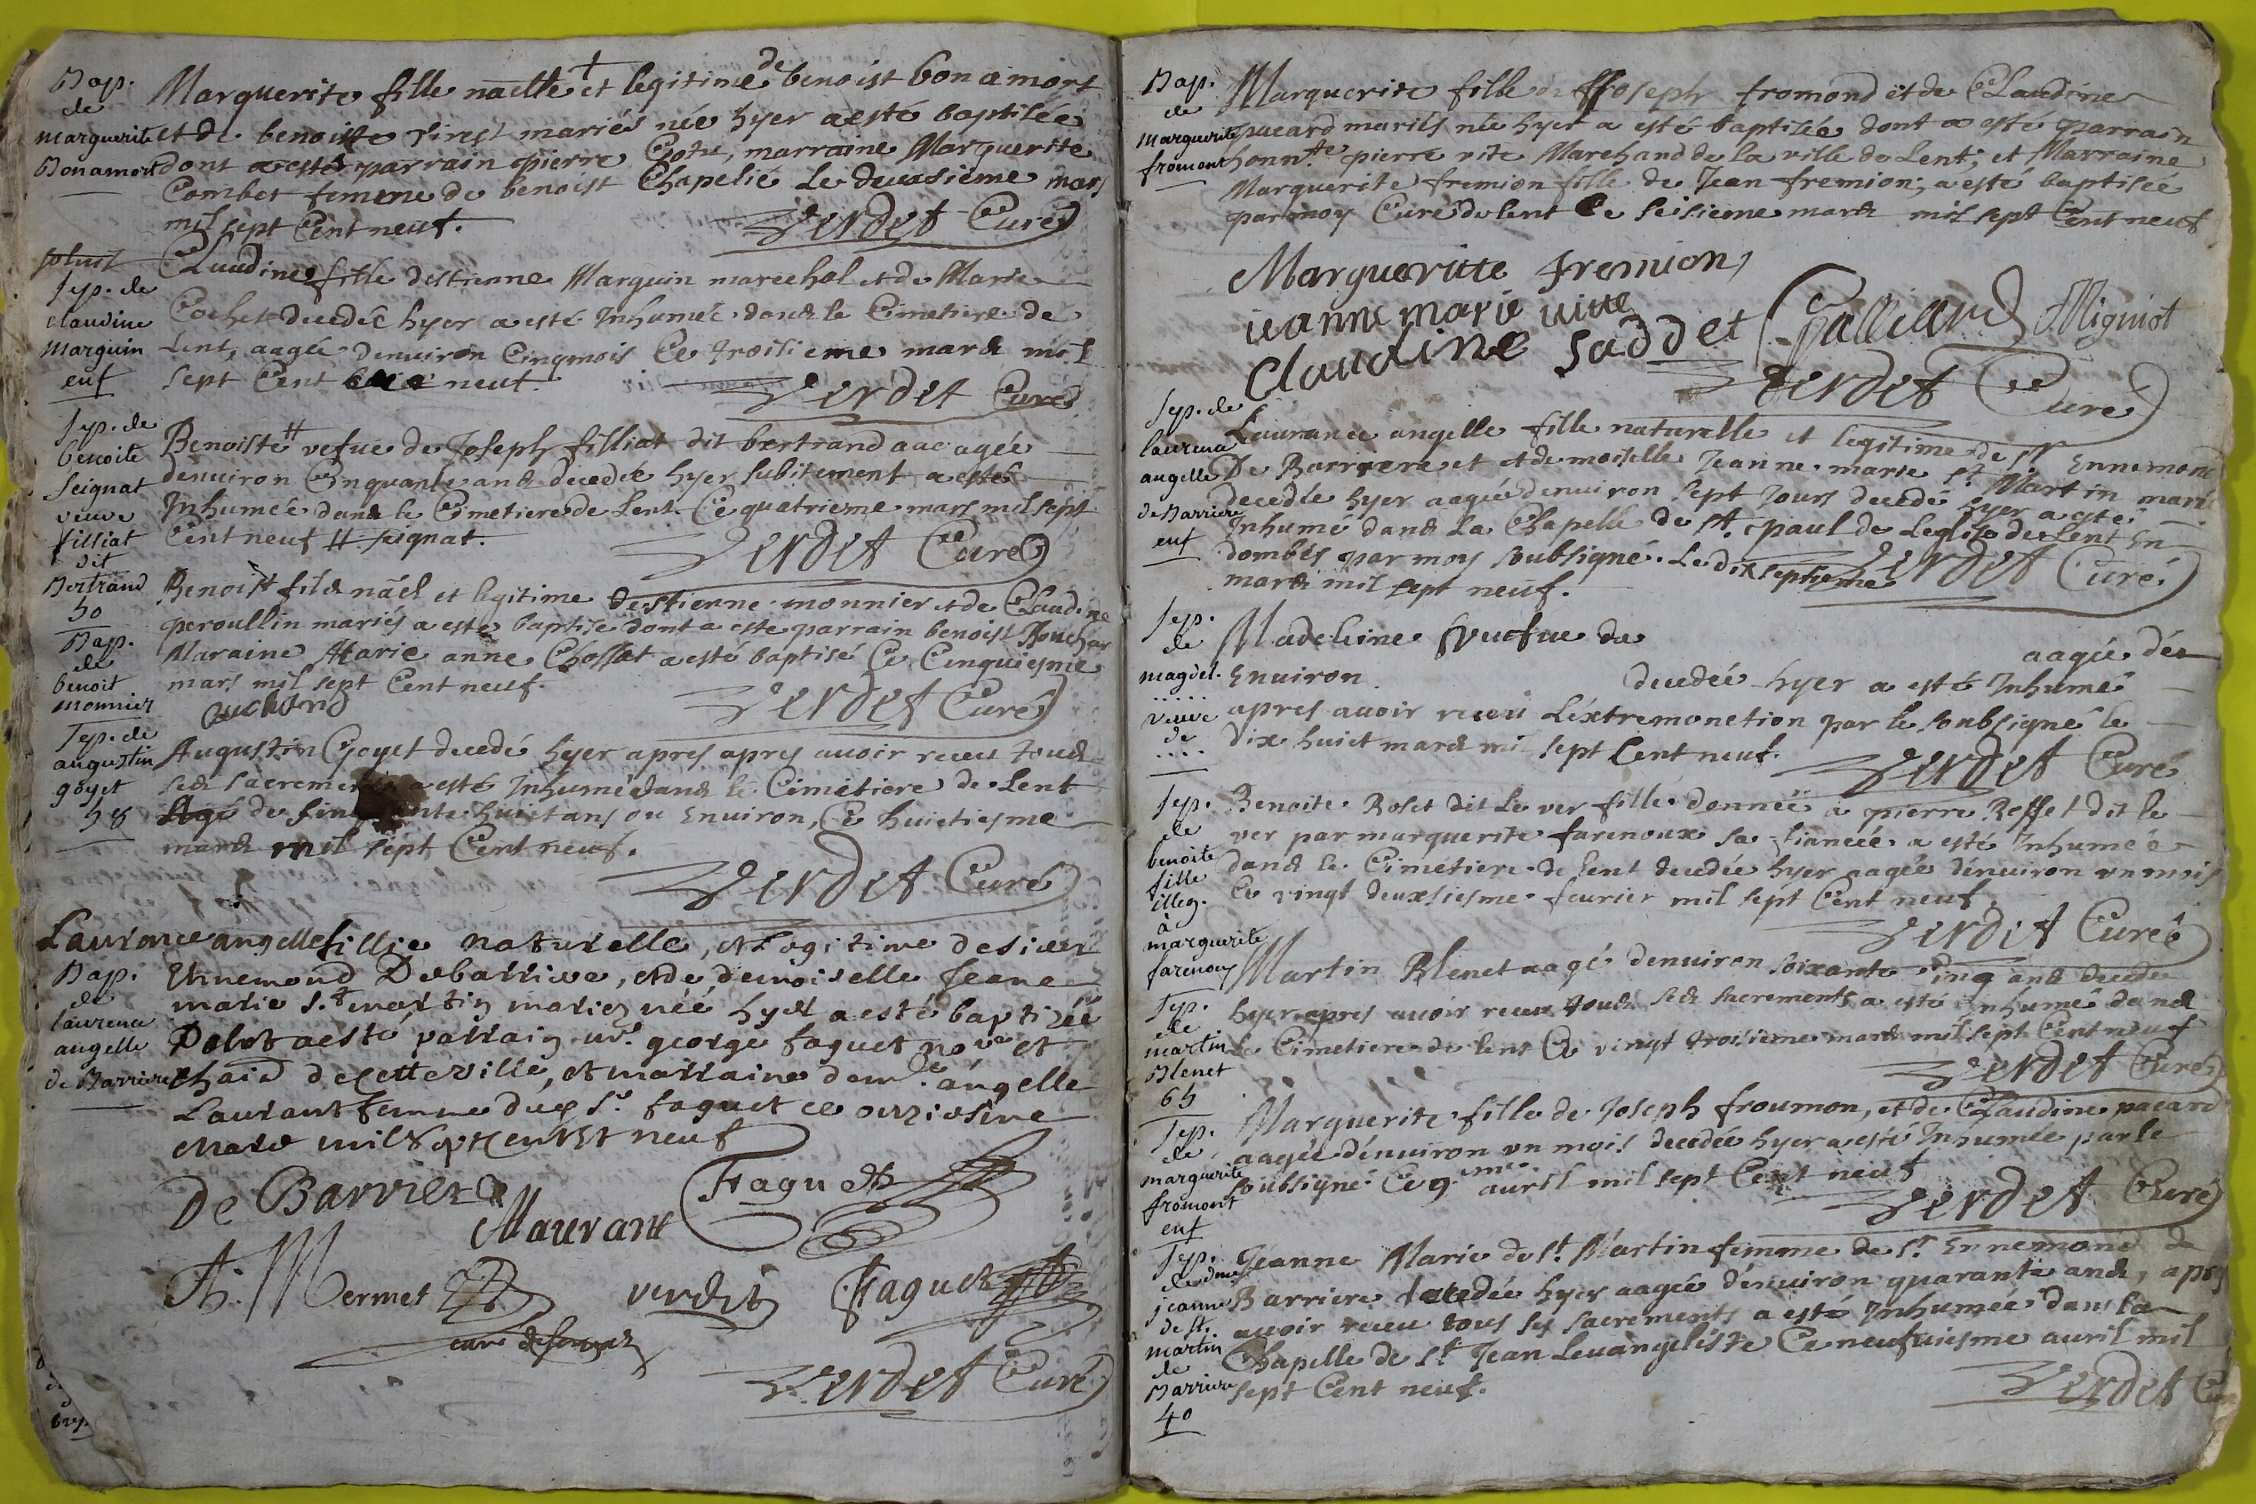 Bap.
de
marguerite
Bonamort
Marguerite fille naêlle et legitime de benoist bonamort
et de benoiste virest mariés née hyer a esté baptisée
dont a esté parrain pierre Cotu, marraine Marguerite
Combet femme de benoist Chapelié Le deuxsième mars
mil sept Cent neuf.
Verdet Curé
Sep. de
claudine
Marguin
enf
Claudine fille destienne Marguin marechal et de Marie
Cochet decedée hyer a esté Inhumée dans le Cimetiere de
Lent, aagée denuiron Cinqmois Ce troisieme mars mil
sept Cent neuf.
Verdet Curé
Sep. de
benoite
Seignat
veuve
filliat
dit
Bertrand
50
Benoiste # vefue de Joseph filliat dit bertrand aagée
denuiron Cinquante ans decedée hyer subitement a esté
Inhumée dans le Cimetiere de Lent Ce quatrieme mars mil sept
Cent neuf # signat.
Verdet Curé
Bap.
de
benoit
monnier
Benoist fils nāel et legitime destienne monnier et de Claudine
peroullin mariés a esté baptisé dont a esté parrain benoist
Maraine Marie anne Chossat a esté baptisé Ce Cinquiesme
mars mil sept Cent neuf.
Verdet Curé
Sep. de
augustin
goyet
58
Augustin Goyet decedé hyer apres apres auoir receu tous
ses sacrements a esté Inhumé dans le Cimetiere de Lent
Agé de huict ans ou Enuiron, Ce huictiesme
mars mil sept Cent neuf.
Verdet Curé
Bap.
de
laurence
angelle
de Barriere
Laurance angelle fillie naturelle, et Legitime de sieur
Ennemond Debarrive, et de demoiselle Jeane
marie st martin mariez née hyer a esté baptizée
Dont a esté parrain mr. george faguet nore et
Chaid de cette ville, et marraine demlle angelle
Laurant femme dud sr. faguet ce onziesme
Mars mil Sept Cent Et neuf
De Barriere
Maurant
Faguet
Th. Mermet
verdet
Faguet
curé de
Verdet Curé
Bap.
de
Marguerite
fromont
Marguerite fille de Joseph fromond et de Claudine
pacard mariés née hyer a esté baptisée dont a esté parrain
honnte pierre vite Marchand de la ville de Lent; et Marraine
Marguerite fremion fille de Jean fremion; a esté baptisée
par moy Curé de lent Ce seisieme mars mil sept Cent neuf
Margueritte fremion
ieanne marie vitte
Claudine saddet Galliard Migniot
Verdet Curé
Sep. de
laurence
angelle
de Barriere
enf
Laurance angelle fille naturelle et legitime de sr Ennemond
De Barriere et et demoiselle Jeanne marie st Martin mariés
decedée hyer aagée denuiron sept Jours decedé hyer a esté
Inhumé dans La Chapelle de st. paul de Leglise de Lent En
dombes par moy soubsigné. Le dix septieme
mars mil sept neuf.
Verdet Curé
Sep.
de
magdel.
.....
veuve
de
....
Madeleine vuefue de
aagée d'en
Enuiron decedée hyer a esté Inhumé
apres auoir receu L'extremonction par le soubsigné le
dix huict mars mil sept Cent neuf.
Verdet Curé
Sep.
de
benoite
fille
illeg.
à
marguerite
farenoux
Benoite Roset dit Le ver fille donneé a pierre Reffet dit le
ver par marguerite farenoux sa fianceé a esté Inhumeé
dans le Cimetiere de Lent decedée hyer aagée d'enuiron un mois
Ce vingt deuxsiesme feurier mil sept Cent neuf.
Verdet Curé
Sep.
de
martin
Blenet
65
Martin Blenet aagé denuiron soixante Cinq ans decedé
hyer apres auoir receu tous ses sacrements a esté Inhumé dans
le Cimetiere de lent Ce vingt troisieme mars mil sept Cent neuf
Verdet Curé
Sep.
de
marguerite
fromont
enf
Marguerite fille de Joseph froumon, et de Claudine pacard
aagée d'enuiron un mois decedée hyer a esté Inhumée par le
soubsigné Ce 9.ime auril mil sept Cent neuf
Verdet Curé
Sep.
de dme
jeanne
de st.
martin
de
Barriere
40
Jeanne Marie de st. Martin femme de sr. Ennemond de
Barriere decedée hyer aagée d'enuiron quarante ans, apres
auoir receu tous ses sacrements a esté Inhumeé dans la
Chapelle de st Jean Leuangeliste Ce neufuiesme auril mil
sept Cent neuf.
Verdet